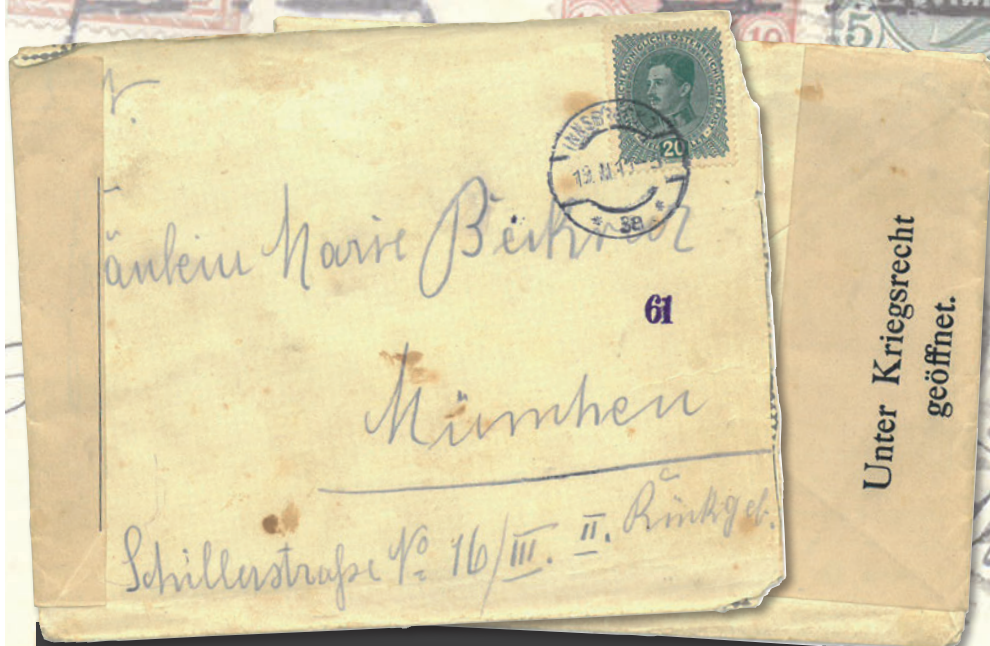 20
INNSBRUCK
* 3a *
äulein Marie
61
München
Schillerstraße No 16/III. II. Rückgeb.
Unter Kriegsrecht
geöffnet.
10
5